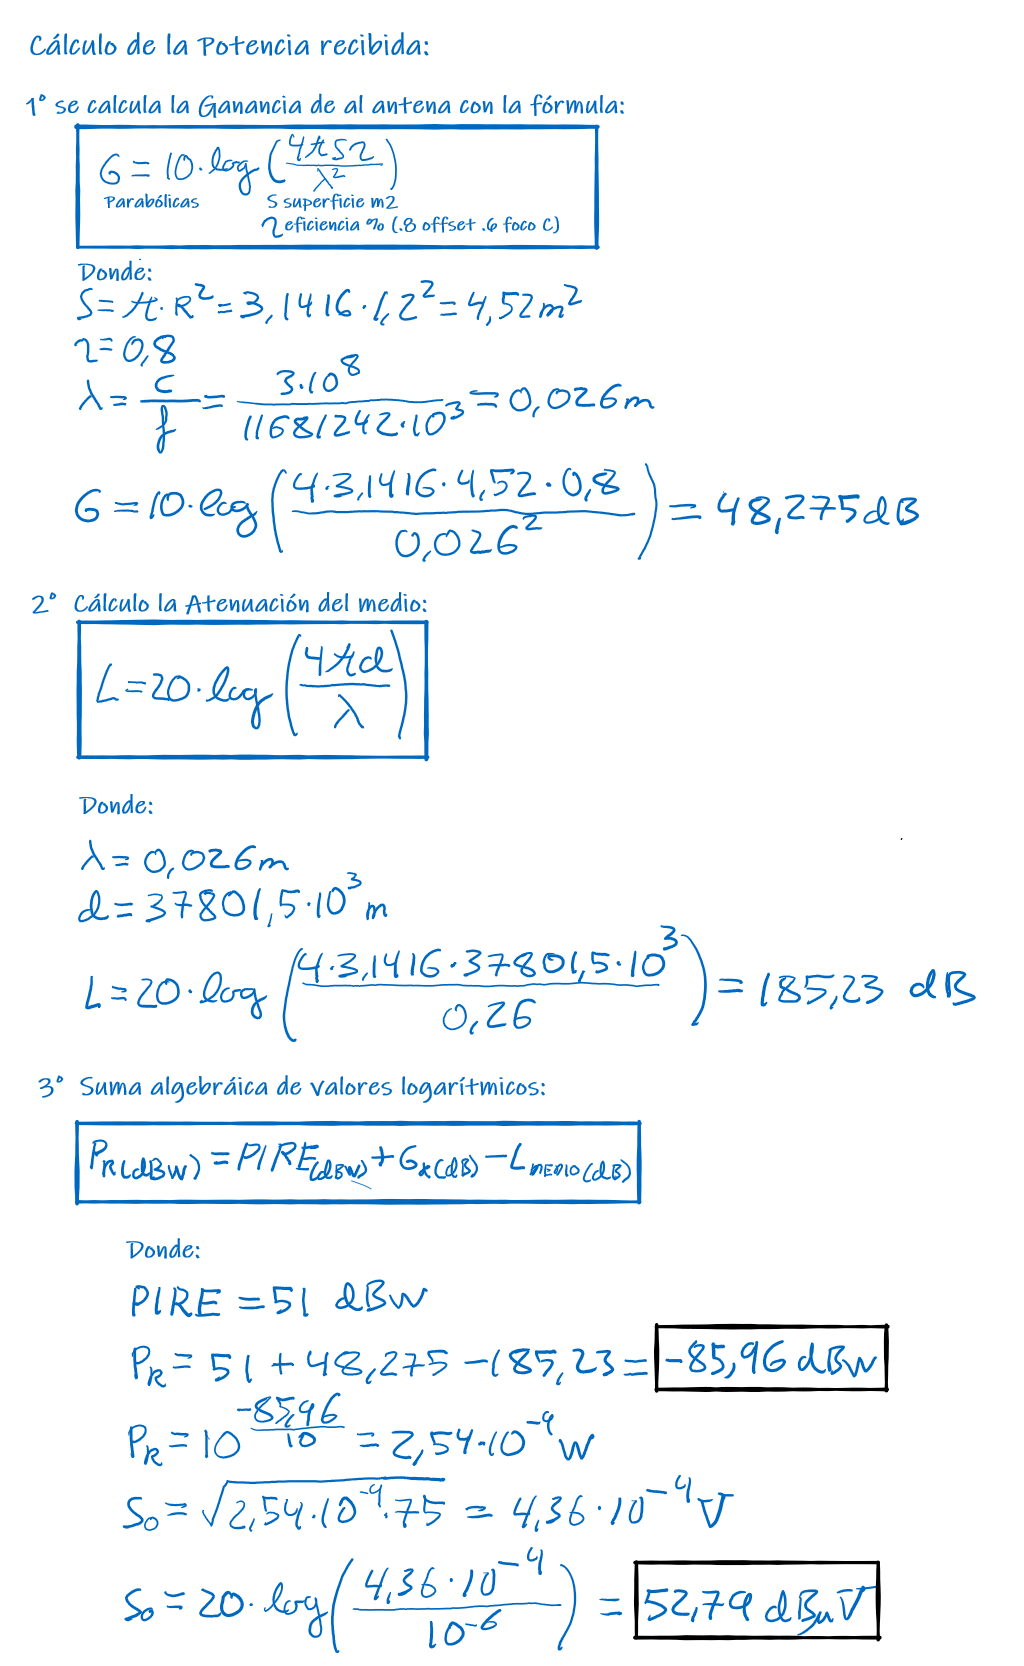 Cálculo de la Potencia recibida:
1° se calcula la Ganancia de al antena con la fórmula:
G = 10·log (4πSη / λ²)
Parabólicas S superficie m2
η eficiencia % (.8 offset .6 foco C)
Donde:
S = π·R² = 3,1416·1,2² = 4,52 m²
η = 0,8
λ = c / f = 3·10⁸ / 11681242·10³ = 0,026 m
G = 10·log (4·3,1416·4,52·0,8 / 0,026²) = 48,275 dB
2° Cálculo la Atenuación del medio:
L = 20·log (4πd / λ)
Donde:
λ = 0,026 m
d = 37801,5·10³ m
L = 20·log (4·3,1416·37801,5·10³ / 0,26) = 185,23 dB
3° Suma algebráica de valores logarítmicos:
PR(dBW) = PIRE(dBW) + Gx(dB) − LMEDIO(dB)
Donde:
PIRE = 51 dBW
PR = 51 + 48,275 − 185,23 = −85,96 dBW
PR = 10^(−85,96 / 10) = 2,54·10⁻⁹ W
So = √(2,54·10⁻⁹·75) = 4,36·10⁻⁴ V
So = 20·log (4,36·10⁻⁴ / 10⁻⁶) = 52,79 dBuV